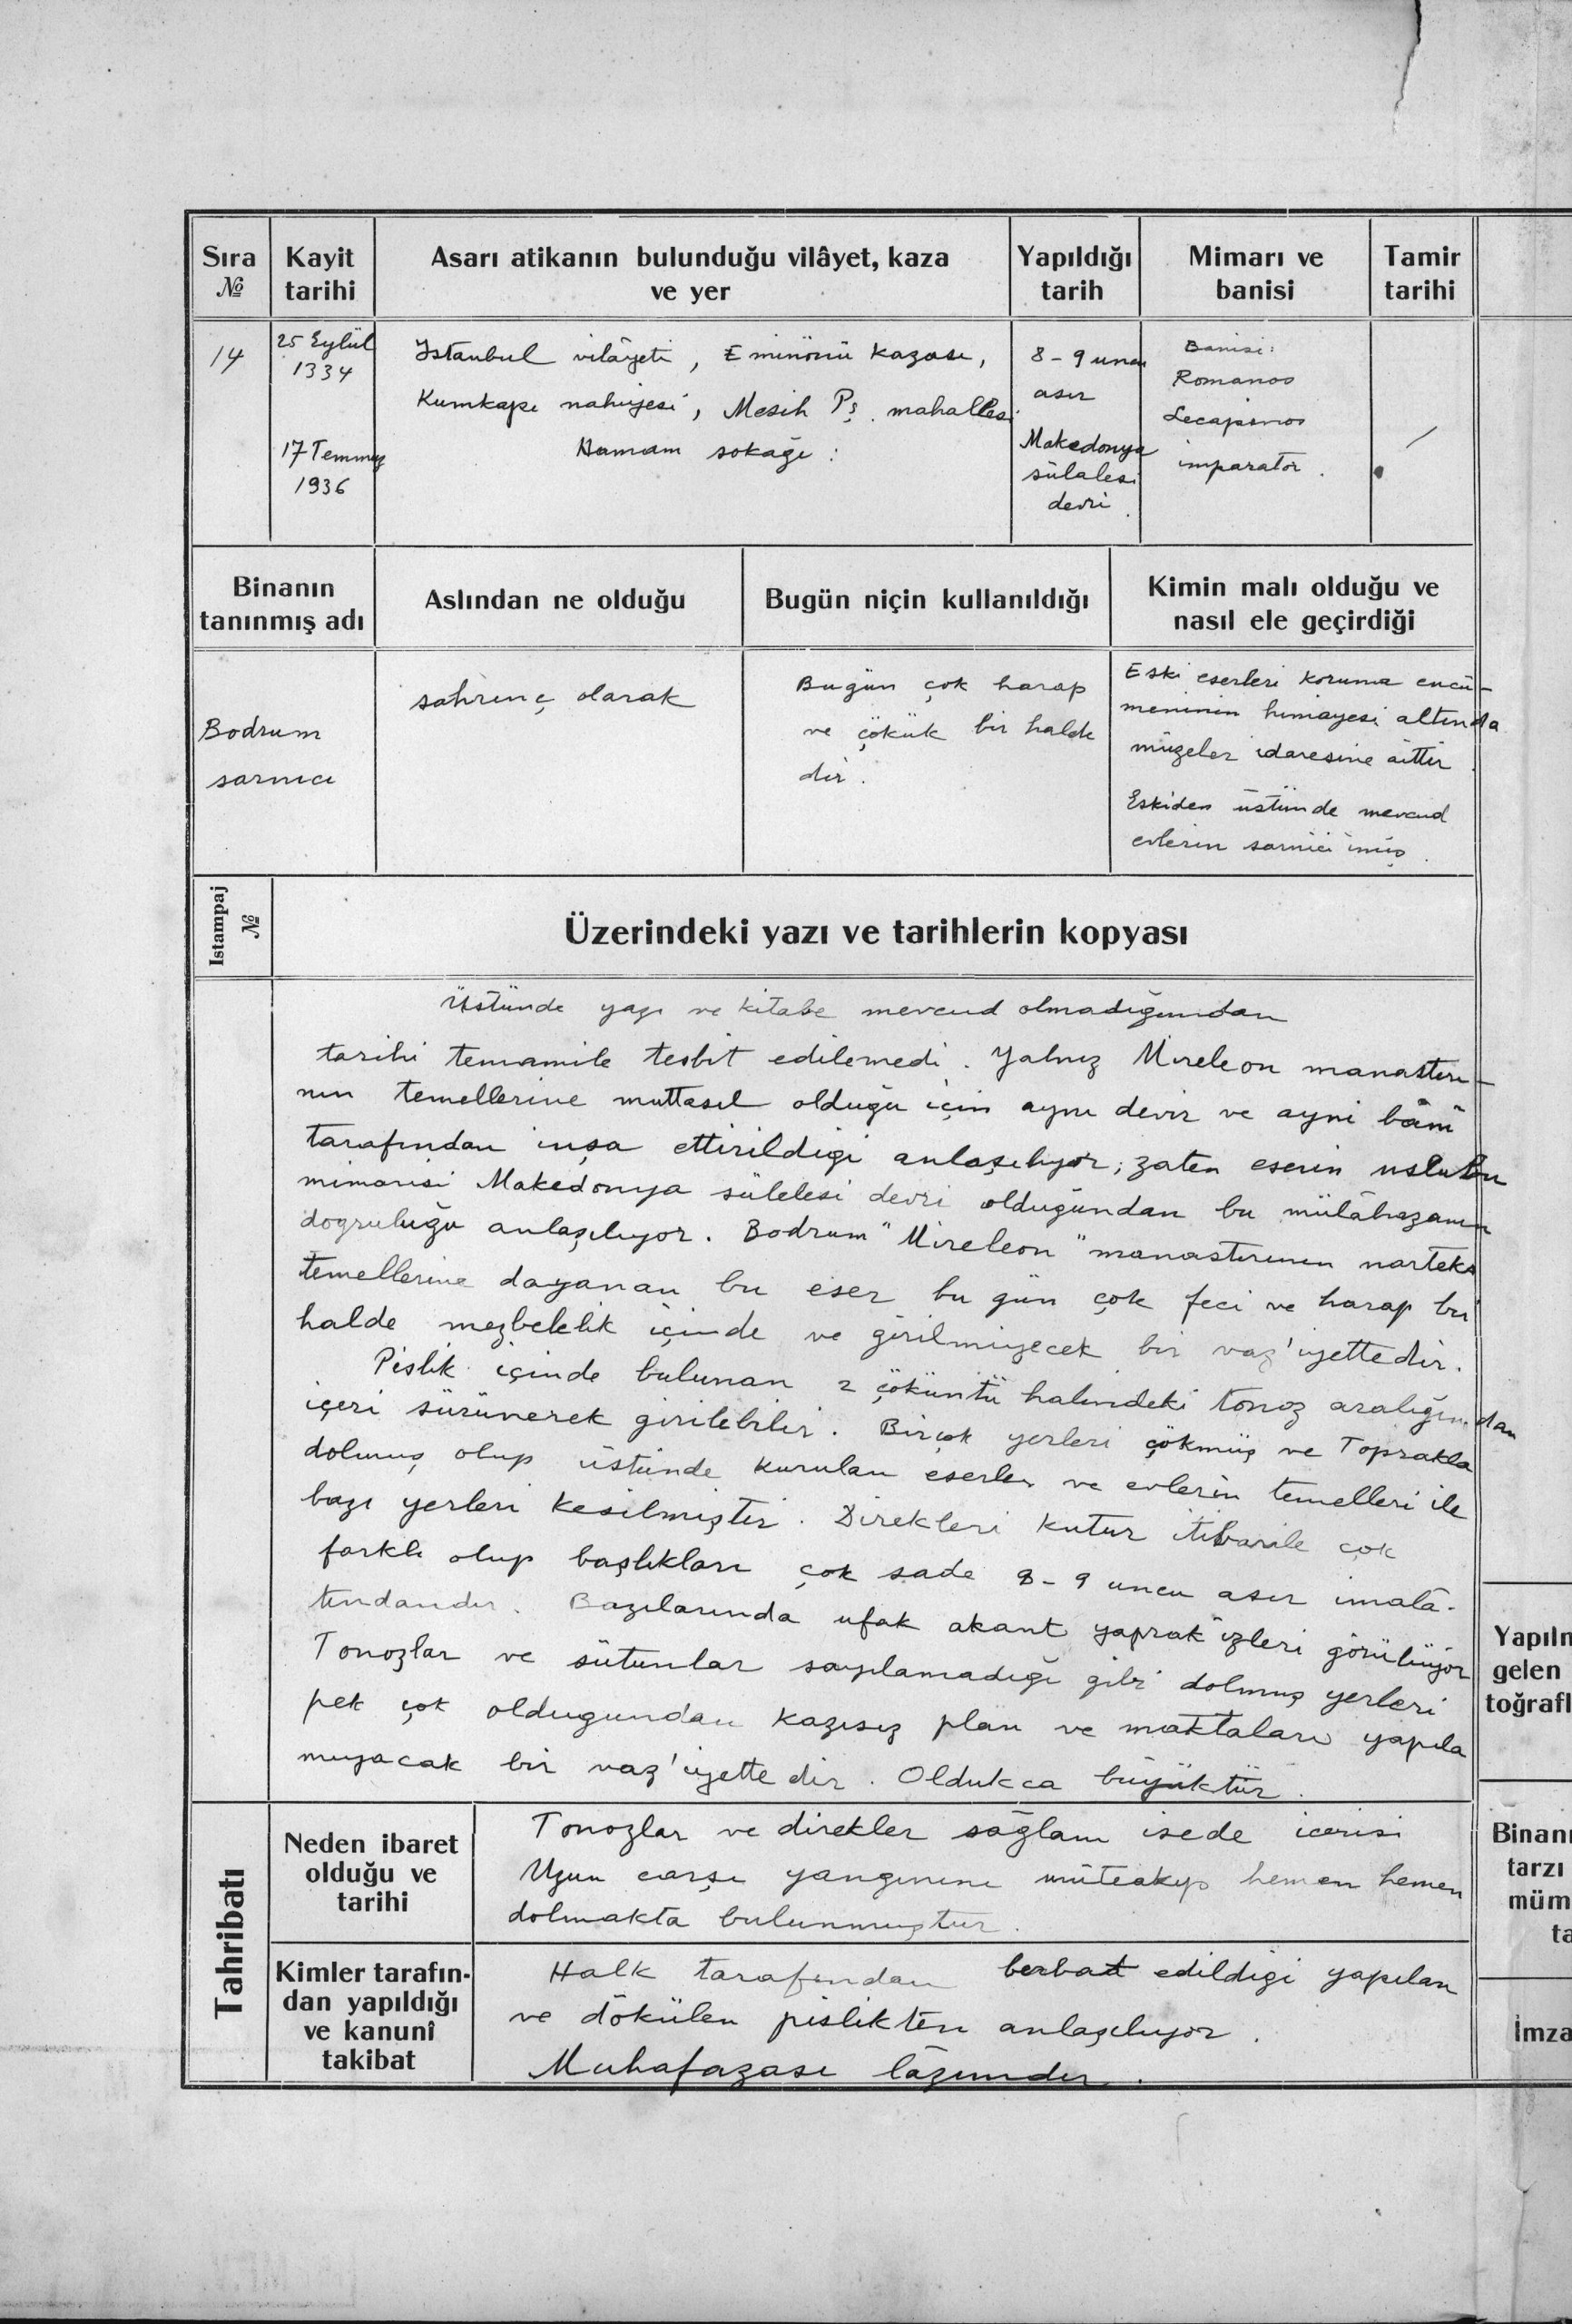 Sıra
№
Kayit
tarihi
Asarı atikanın bulunduğu vilâyet, kaza
ve yer
Yapıldığı
tarih
Mimarı ve
banisi
Tamir
tarihi
14
25 Eylül
1334
17 Temmuz
1936
Istanbul vilâyeti, Eminönü Kazası,
Kumkapı nahiyesi, Mesih Pş. mahallesi
Hamam sokağı:
8-9 uncu
asır
Makedonya
sülalesi
devri.
Banisi:
Romanos
Lecapinos
imparator.
/
Binanın
tanınmış adı
Aslından ne olduğu
Bugün niçin kullanıldığı
Kimin malı olduğu ve
nasıl ele geçirdiği
Bodrum
sarnıcı
sahrınç olarak
Bugün çok harap
ve çökük bir halde
dir.
Eski eserleri koruma encü-
meninin himayesi altında
müzeler idaresine aittir.
Eskiden üstünde mevcud
evlerin sarnici imiş.
Istampaj
№
Üzerindeki yazı ve tarihlerin kopyası
Üstünde yazı ve kitabe mevcud olmadığından
tarihi temamile tesbit edilemedi. Yalnız Mireleon manastırı-
nın temellerine muttasıl olduğu için aynı devir ve ayni bâni
tarafından inşa ettirildiği anlaşılıyor; zaten eserin uslubu
mimarisi Makedonya sülelesi devri olduğundan bu mülâhazanın
doğruluğu anlaşılıyor. Bodrum "Mireleon" manastırının narteks
temellerine dayanan bu eser bu gün çok feci ve harap bir
halde mezbelelik içinde ve girilmiyecek bir vaz'iyettedir.
Pislik içinde bulunan 2 çöküntü halindeki tonoz aralığından
içeri sürünerek girilebilir. Birçok yerleri çökmüş ve Toprakla
dolmuş olup üstünde kurulan eserler ve evlerin temelleri ile
bazı yerleri kesilmiştir. Direkleri kutur itibarile çok
farklı olup başlıkları çok sade 8-9 uncu asır imalâ-
tındandır. Bazılarında ufak akant yaprak izleri görülüyor
Tonozlar ve sütunlar sayılamadığı gibi dolmuş yerleri
pek çok oldugundan kazısız plan ve maktaları yapıla
mıyacak bir vaz'iyettedir. Oldukca büyüktür.
Tahribatı
Neden ibaret
olduğu ve
tarihi
Tonozlar ve direkler sağlam isede icerisi
Uzun carşı yangınını müteakıp hemen hemen
dolmakta bulunmuştur.
Kimler tarafın-
dan yapıldığı
ve kanunî
takibat
Halk tarafından berbat edildigi yapılan
ve dökülen pislikten anlaşılıyor.
Muhafazası lâzımdır.
Yapıln
gelen
toğrafl
Binanı
tarzı
müm
ta
İmza